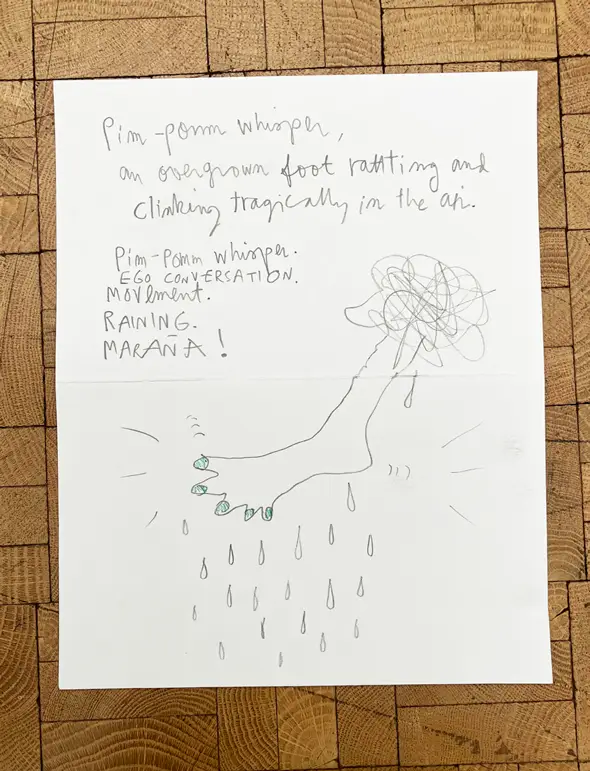 Pim-pomm whisper,
an overgrown foot rattting and
clinking tragically in the air.
Pim-Pomm whisper.
EGO CONVERSATION.
MOVEMENT.
RAINING.
MARAÑA!